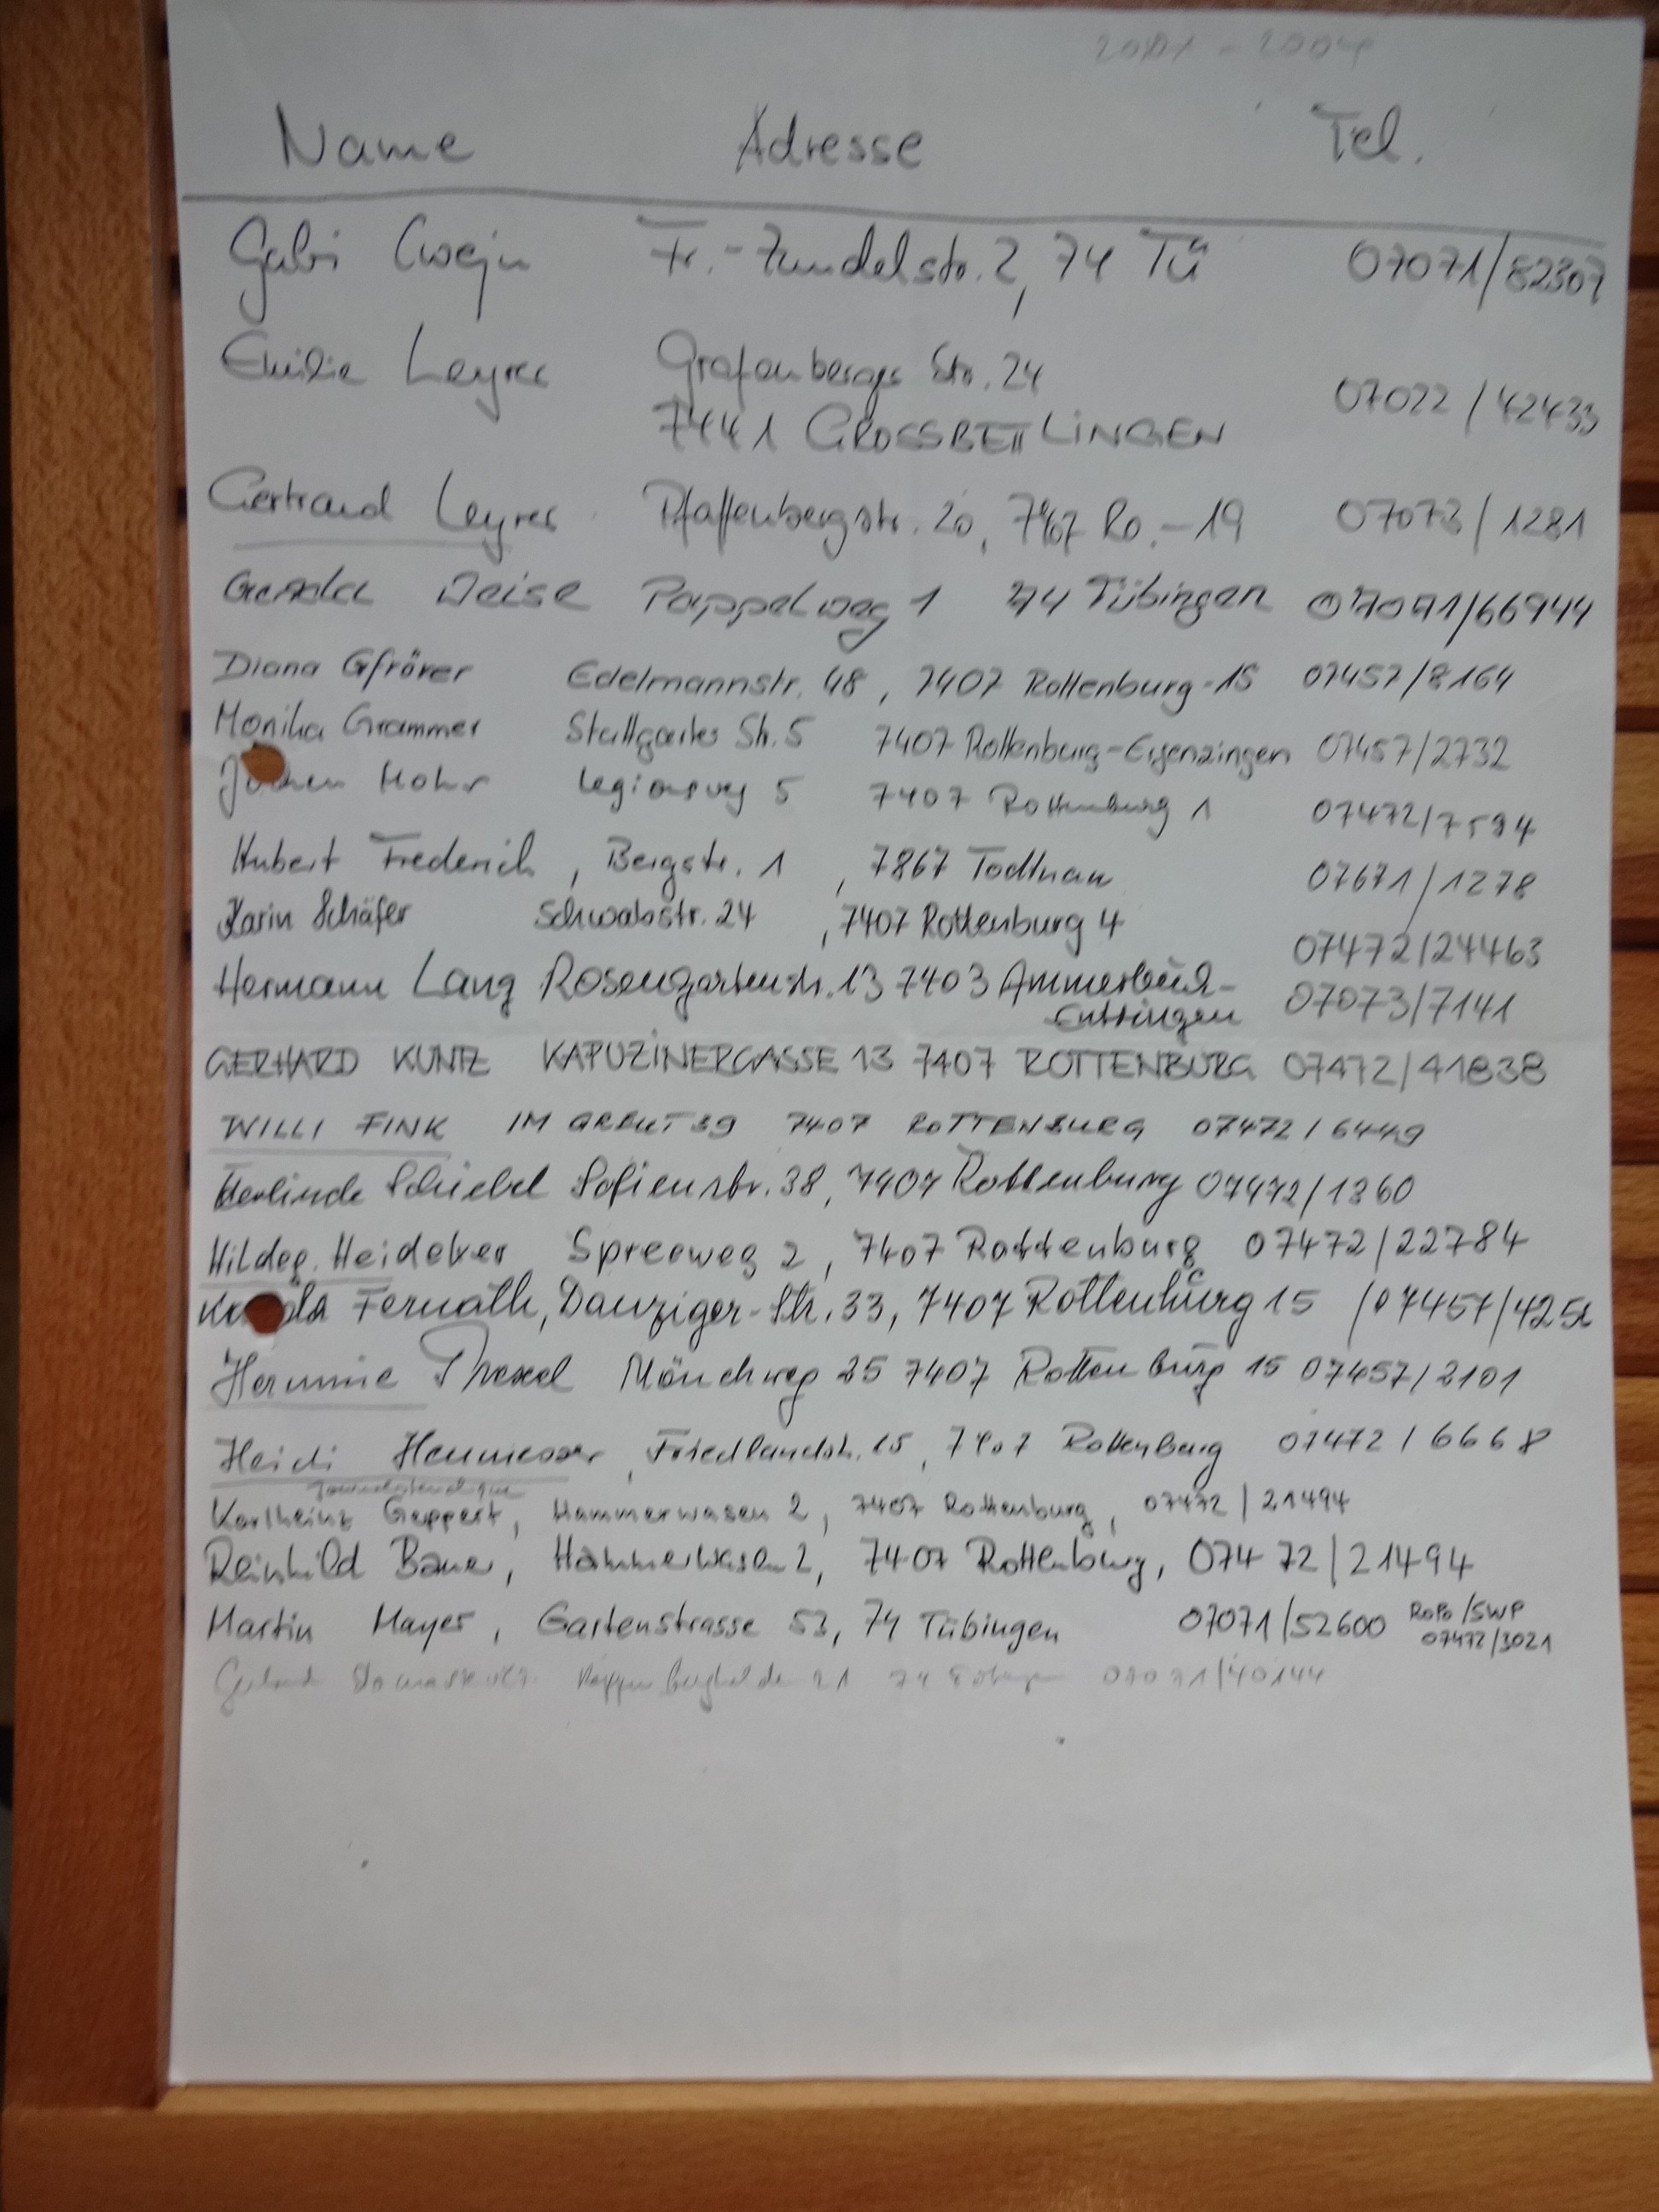 Name Adresse Tel.
Gabi Fr.-Zundelstr. 2, 74 Tü 07071/82307
Emilie Leyrer Grafenberger Str. 24
7441 GROSSBETTLINGEN 07022/42433
Gertraud Leyrer Pfaffenbergstr. 20, 7407 Ro.-19 07073/1281
Gerda Weise Pappelweg 1 74 Tübingen 07071/66944
Diana Gfrörer Edelmannstr. 48, 7407 Rottenburg-15 07457/8164
Monika Grammer Stuttgarter Str. 5 7407 Rottenburg-Ergenzingen 07457/2732
Mohr Legionsweg 5 7407 Rottenburg 1 07472/7594
Hubert Frederich, Bergstr. 1, 7867 Todtnau 07671/1278
Karin Schäfer Schwabstr. 24, 7407 Rottenburg 4 07472/24463
Hermann Lang Rosengartenstr. 13 7403 Ammerbuch-
Entringen 07073/7141
GERHARD KUNTZ KAPUZINERGASSE 13 7407 ROTTENBURG 07472/41838
WILLI FINK IM 39 7407 ROTTENBURG 07472/6449
Herlinde Schiebel Sofienstr. 38, 7407 Rottenburg 07472/1360
Hildeg. Heideker Spreeweg 2, 7407 Rottenburg 07472/22784
Fernath, Danziger-Str. 33, 7407 Rottenburg 15 /07457/
Hermine Mönchweg 25 7407 Rottenburg 15 07457/2101
Heidi Friedlandstr. 15, 7407 Rottenburg 07472/6668
Karlheinz Geppert, Hammerwasen 2, 7407 Rottenburg, 07472/21494
Reinhild Bauer, Hammerwasen 2, 7407 Rottenburg, 07472/21494
Martin Mayer, Gartenstrasse 53, 74 Tübingen 07071/52600 RoPo/SWP
07472/3021
74 Tübingen 07071/40144